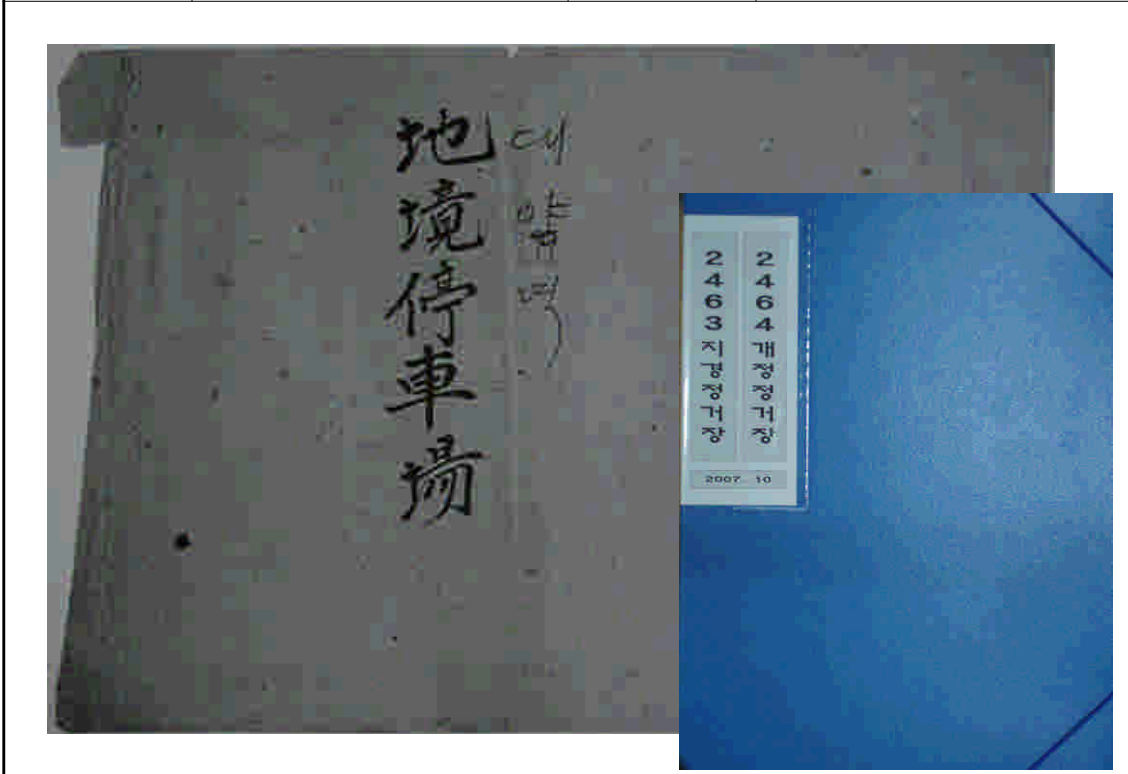 地境停車場
2463지경정거장
2464개정정거장
2007. 10